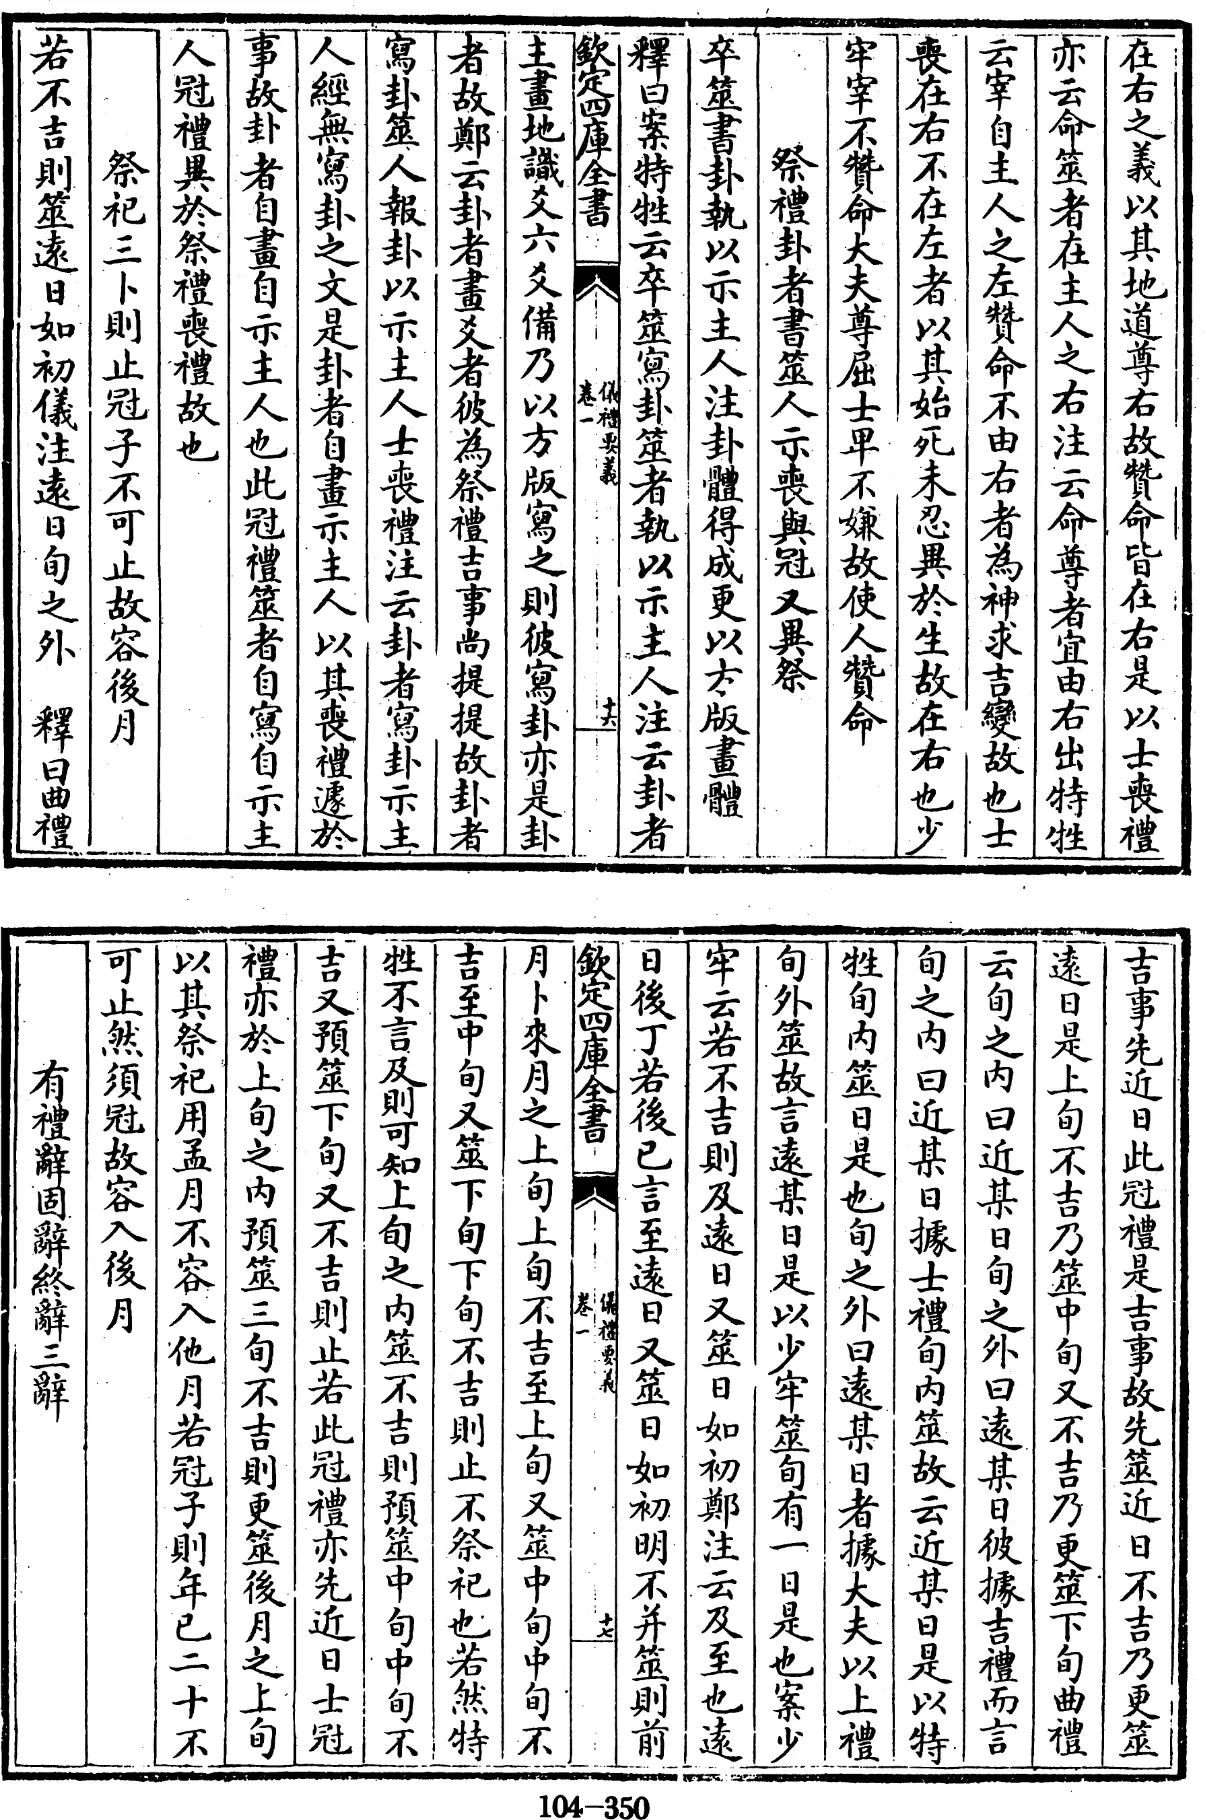 在右之義以其地道尊右故贊命皆在右是以士喪禮
亦云命筮者在主人之右注云命尊者宜由右出特牲
云宰自主人之左贊命不由右者為神求吉變故也士
喪在右不在左者以其始死未忍異於生故在右也少
牢宰不贊命大夫尊屈士卑不嫌故使人贊命
祭禮卦者書筮人示喪與冠又異祭
卒筮書卦執以示主人注卦體得成更以方版畫體
釋曰案特牲云卒筮寫卦筮者執以示主人注云卦者
欽定四庫全書
儀禮要義
卷一
十六
主畫地識爻六爻備乃以方版寫之則彼寫卦亦是卦
者故鄭云卦者畫爻者彼為祭禮吉事尚提提故卦者
寫卦筮人報卦以示主人士喪禮注云卦者寫卦示主
人經無寫卦之文是卦者自畫示主人以其喪禮遽於
事故卦者自畫自示主人也此冠禮筮者自寫自示主
人冠禮異於祭禮喪禮故也
祭祀三卜則止冠子不可止故容後月
若不吉則筮遠日如初儀注遠日旬之外　釋曰曲禮
吉事先近日此冠禮是吉事故先筮近日不吉乃更筮
遠日是上旬不吉乃筮中旬又不吉乃更筮下旬曲禮
云旬之內曰近某日旬之外曰遠某日彼據吉禮而言
旬之內曰近某日據士禮旬內筮故云近某日是以特
牲旬內筮日是也旬之外曰遠某日者據大夫以上禮
旬外筮故言遠某日是以少牢筮旬有一日是也案少
牢云若不吉則及遠日又筮日如初鄭注云及至也遠
日後丁若後已言至遠日又筮日如初明不并筮則前
欽定四庫全書
儀禮要義
卷一
十七
月卜來月之上旬上旬不吉至上旬又筮中旬中旬不
吉至中旬又筮下旬下旬不吉則止不祭祀也若然特
牲不言及則可知上旬之內筮不吉則預筮中旬中旬不
吉又預筮下旬又不吉則止若此冠禮亦先近日士冠
禮亦於上旬之內預筮三旬不吉則更筮後月之上旬
以其祭祀用孟月不容入他月若冠子則年已二十不
可止然須冠故容入後月
有禮辭固辭終辭三辭
104-350